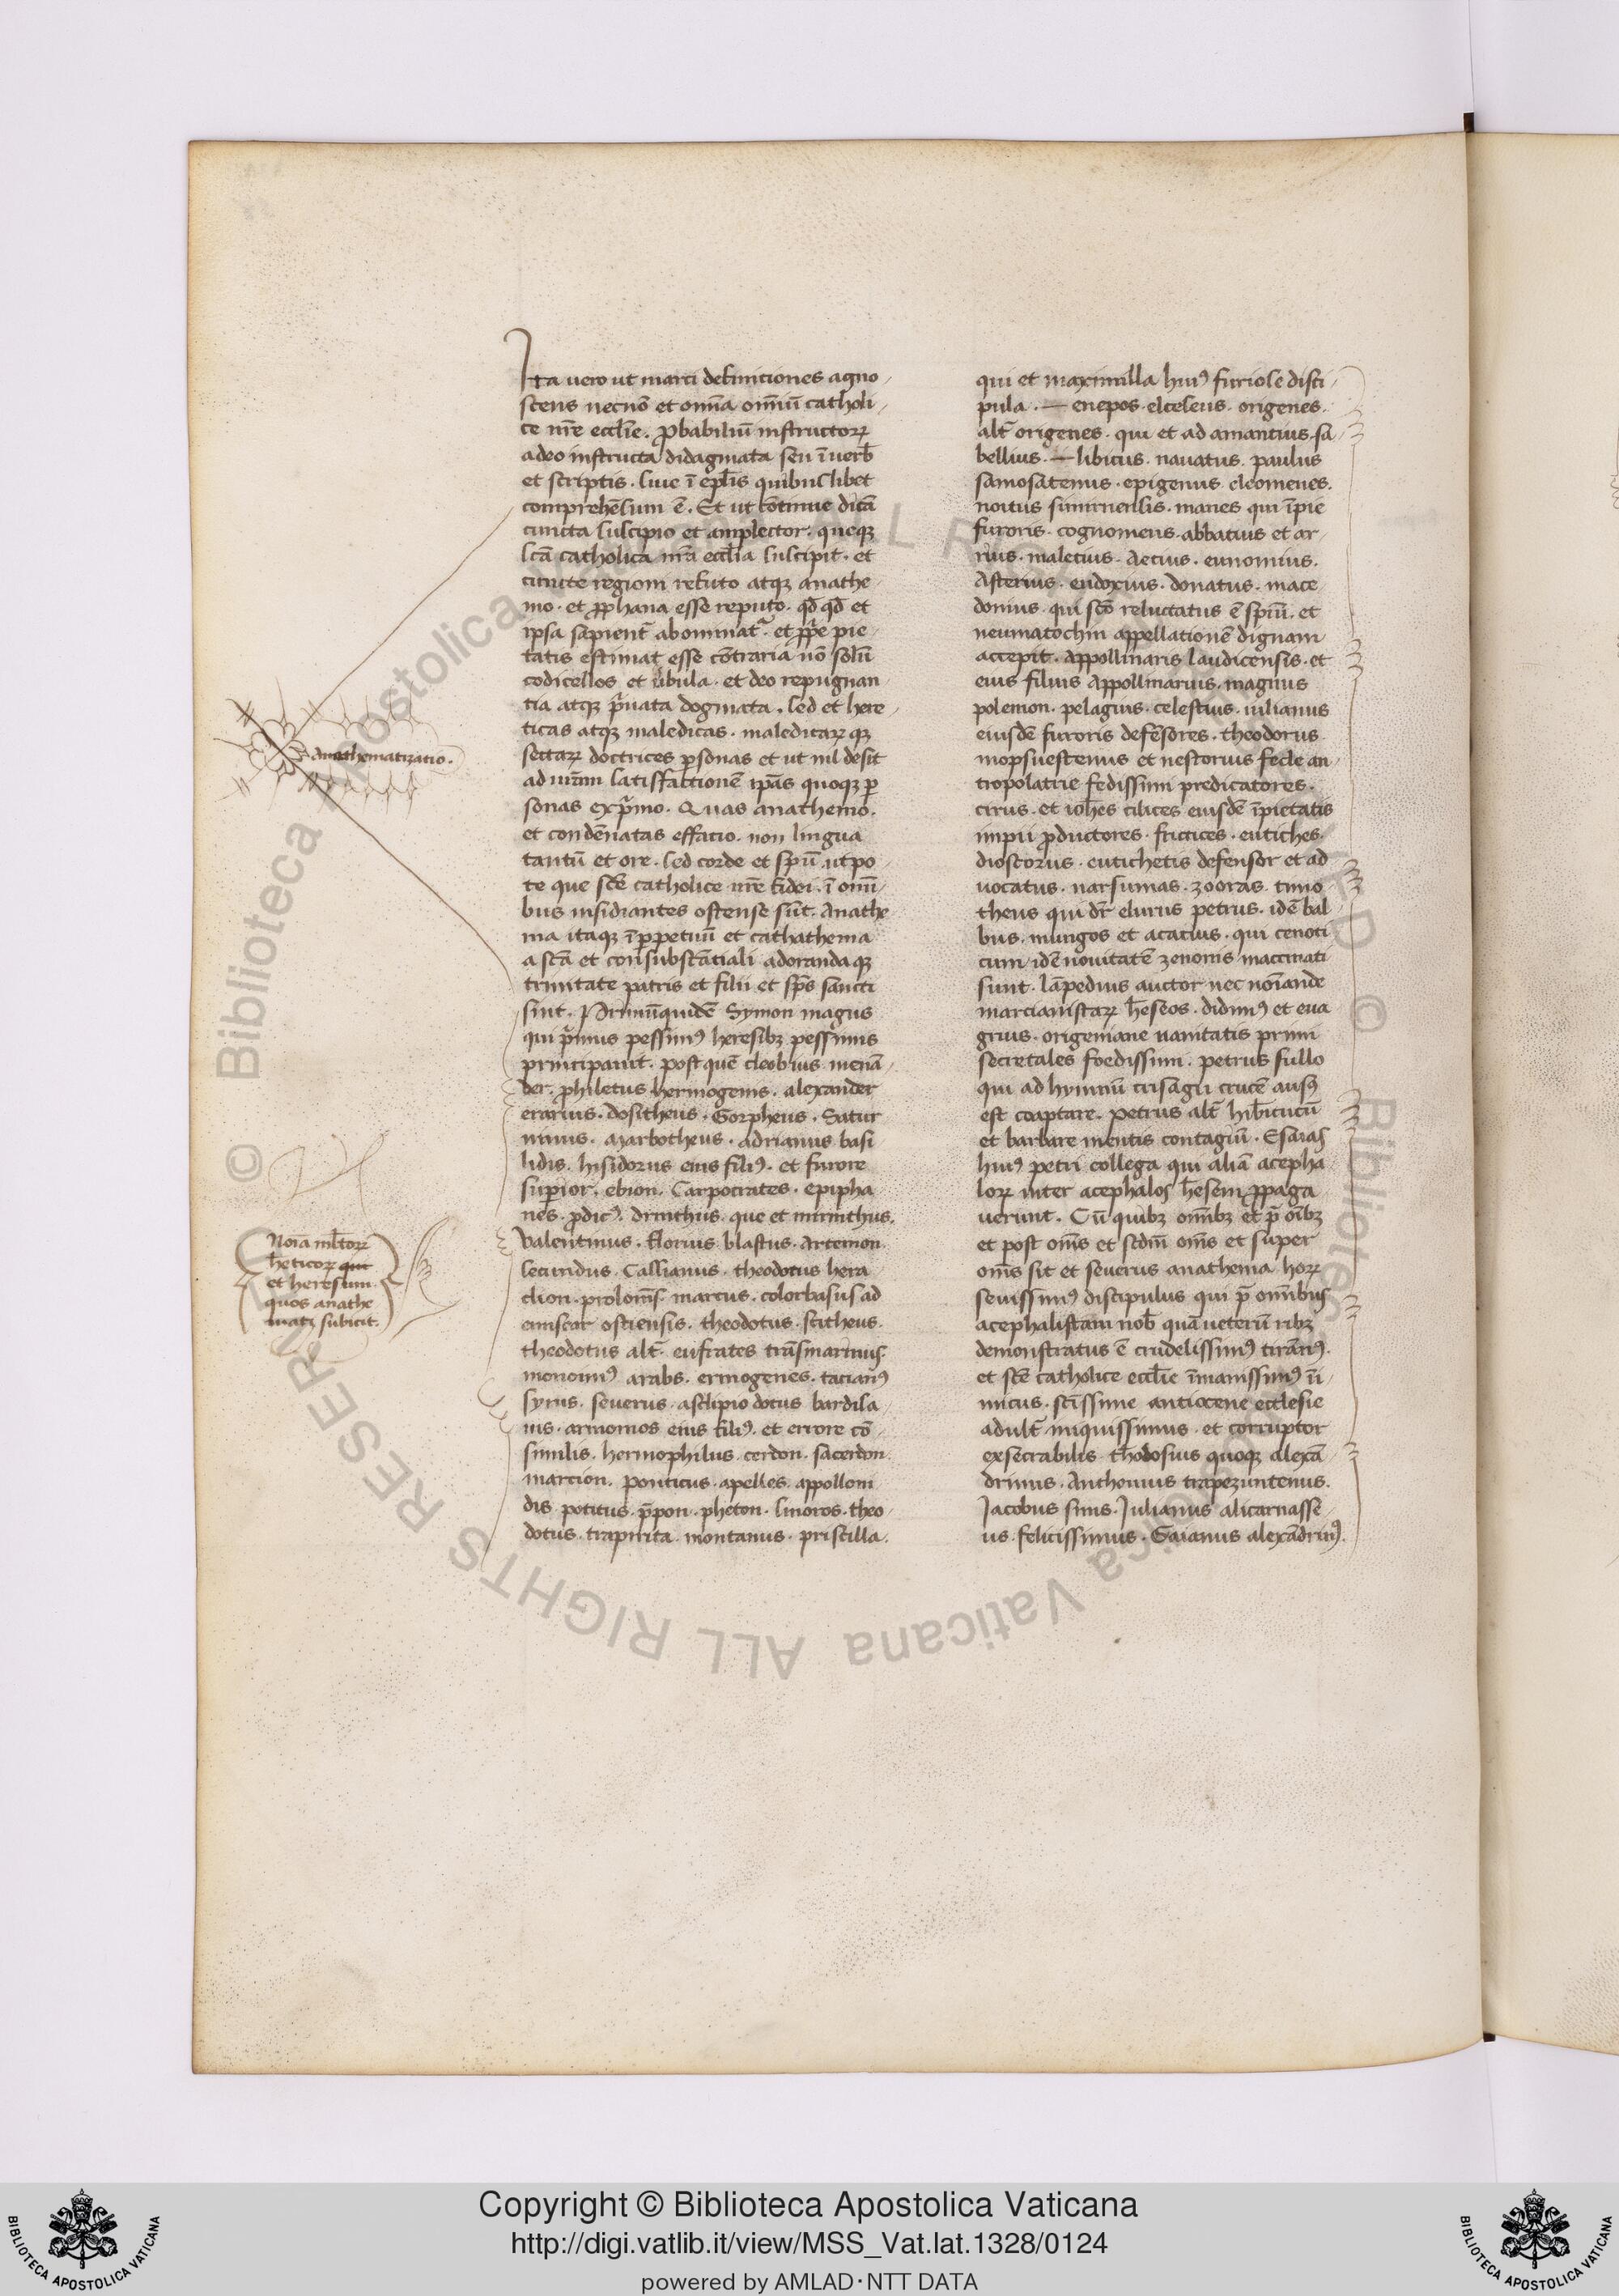 Ita uero ut marci definiciones agno
scens necnō et om̄a om̄iū catholi
ce nr̄e eccl̄ie. ꝓbabiliū instructoꝝ
adeo instructa didagmata seu ī uerb̄
et scriptis. siue ī epl̄is quibuslibet
comprehēsum ē. Et ut cōtinue dicā
cuncta suscipio et amplector. queqꝫ
scā catholica nr̄a eccl̄ia suscipit. et
cuncte regiom refuto atqꝫ anathe
mo. et ꝓphana esse reputo. qd̄ qd̄ et
ipsa sapient̄ abominat᷑. et ꝓpr̄e pie
tatis estimat esse cōtraria nō solū
codicellos et uerbula. et deo repugnan
tia atqꝫ pͥuata dogmata. sed et here
ticas atqꝫ maledicas. maledicaꝝqꝫ
sectaꝝ doctrices ꝑsonas et ut nil desit
ad ur̄am satisfactionē ip̄as quoqꝫ ꝑ
sonas expͥmo. Quas anathemo.
et condēnatas effatio. non lingua
tantū et ore. sed corde et sp̄u utpo
te que scē catholice nr̄e fidei. ī om̄i
bus insidiantes ostense sūt. Anathe
ma itaqꝫ ī ꝑpetuū et cathathema
a scā et consubstātiali adorandaqꝫ
trinitate patris et filii et sp̄s sancti
sint. Primūquidē Symon magus
qui pͥmus pessimꝰ heresibꝫ pessimis
principauit. post quē cleobius menā
der. philetus hermogenis. alexander
erarius. dositheus. Gorpheus. Satur
ninus. Marbotheus. adrianus basi
lidis. hisidorus eius filiꝰ. et furore
superior. ebion. Carpocrates. epipha
nes. ꝓdicꝰ. drinthus. que et mirinthus.
Valentinus. florius blastus. Artemon.
secundus. Cassianus. theodotus hera
clion. ptolom̄s. marcus. colorbasus ad
emiscor ostiensis. theodotus. scitheus.
theodotus alt̄. eufrates trāsmarinus.
monoimꝰ arabs. ermogenes. tacianꝰ
syrus. seuerus. asclipiodotus bardisa
nis. armonios eius filiꝰ. et errore cō
similis. hermophilus. cerdon. sacerdon.
marcion. ponticus. apelles. appolloni
dis. potitus. p̄pon. pheton. sinoros. theo
dotus. trapirita. montanus. priscilla.
qui et maximilla huiꝰ furiose disci
pula. — enepos. elceseus. origenes.
alt̄ origenes. qui et adamantius. sa
bellius. — libicus. nauatus. paulus
samosatenus. epigenus. cleomenes.
noitus simirnensis. manes qui īpie
furoris. cognomens. abbatius et ar
rius. maletius. Aetius. eunomius.
Asterius. eudoxius. donatus. mace
donius. qui scō reluctatus ē spiū. et
neumatochin appellationē dignam
accepit. Appollinaris laudicensis. et
eius filius Appollinarius. magnus
polemon. pelagius. celestius. iulianus
eiusdē furoris defēsores. theodorus
mopsuestenus et nestorius fede an
tropolatrie fedissimi predicatores.
cirus. et ioh̄es cilices eiusdē īpietatis
impii ꝓductores. frictices. eutiches.
dioscorus. eutichetis defensor et ad
uocatus. narsumas. zooras. timo
theus qui dr̄ elurus petrus. idē bal
bus. mungos et acacius. qui cenoti
cum idē nouitatē zenonis maccinati
sunt. lāpedius auctor nec noīande
marcianistaꝝ h̄eseos. didimꝰ et eua
grius. origeniane uanitatis primi
secretales foedissimi. petrus fullo
qui ad hymnū trisagii crucē ausꝰ
est coaptare. petrus alt̄ hib̄icucū
et barbare mentis contagiū. Esaias
huiꝰ petri collega qui aliā acepha
loꝝ inter acephalos h̄esem ꝓpaga
uerunt. Cū quibꝫ om̄ibꝫ et p̄ oībꝫ
et post om̄s et scdm̄ om̄s et super
om̄s sit et seuerus anathema hoꝝ
seuissimꝰ discipulus qui p̄ om̄ibus
acephalistam nob̄ quā ueterū ribꝫ
demonstratus ē crudelissimꝰ tirānꝰ.
et scē catholice eccl̄ie īmanissimꝰ ī
imicus. scissime antiocene ecclesie
adult̄ iniquissimus. et corruptor
exsecrabilis. theodosius quoqꝫ alexā
drinus. Anthonius trapezuntenus.
Jacobus sirus. Julianus alicarnasse
us. felicissimus. Gaianus alexādrinꝰ.
Anathematizatio.
Noīa ml̄toꝝ
h̄eticoꝝ qui
et heresum
quos anathe
mati subicit.
© Biblioteca Apostolica Vaticana ALL RIGHTS RESERVED
Copyright © Biblioteca Apostolica Vaticana
http://digi.vatlib.it/view/MSS_Vat.lat.1328/0124
powered by AMLAD·NTT DATA
BIBLIOTECA APOSTOLICA VATICANA
BIBLIOTECA APOSTOLICA VATICANA